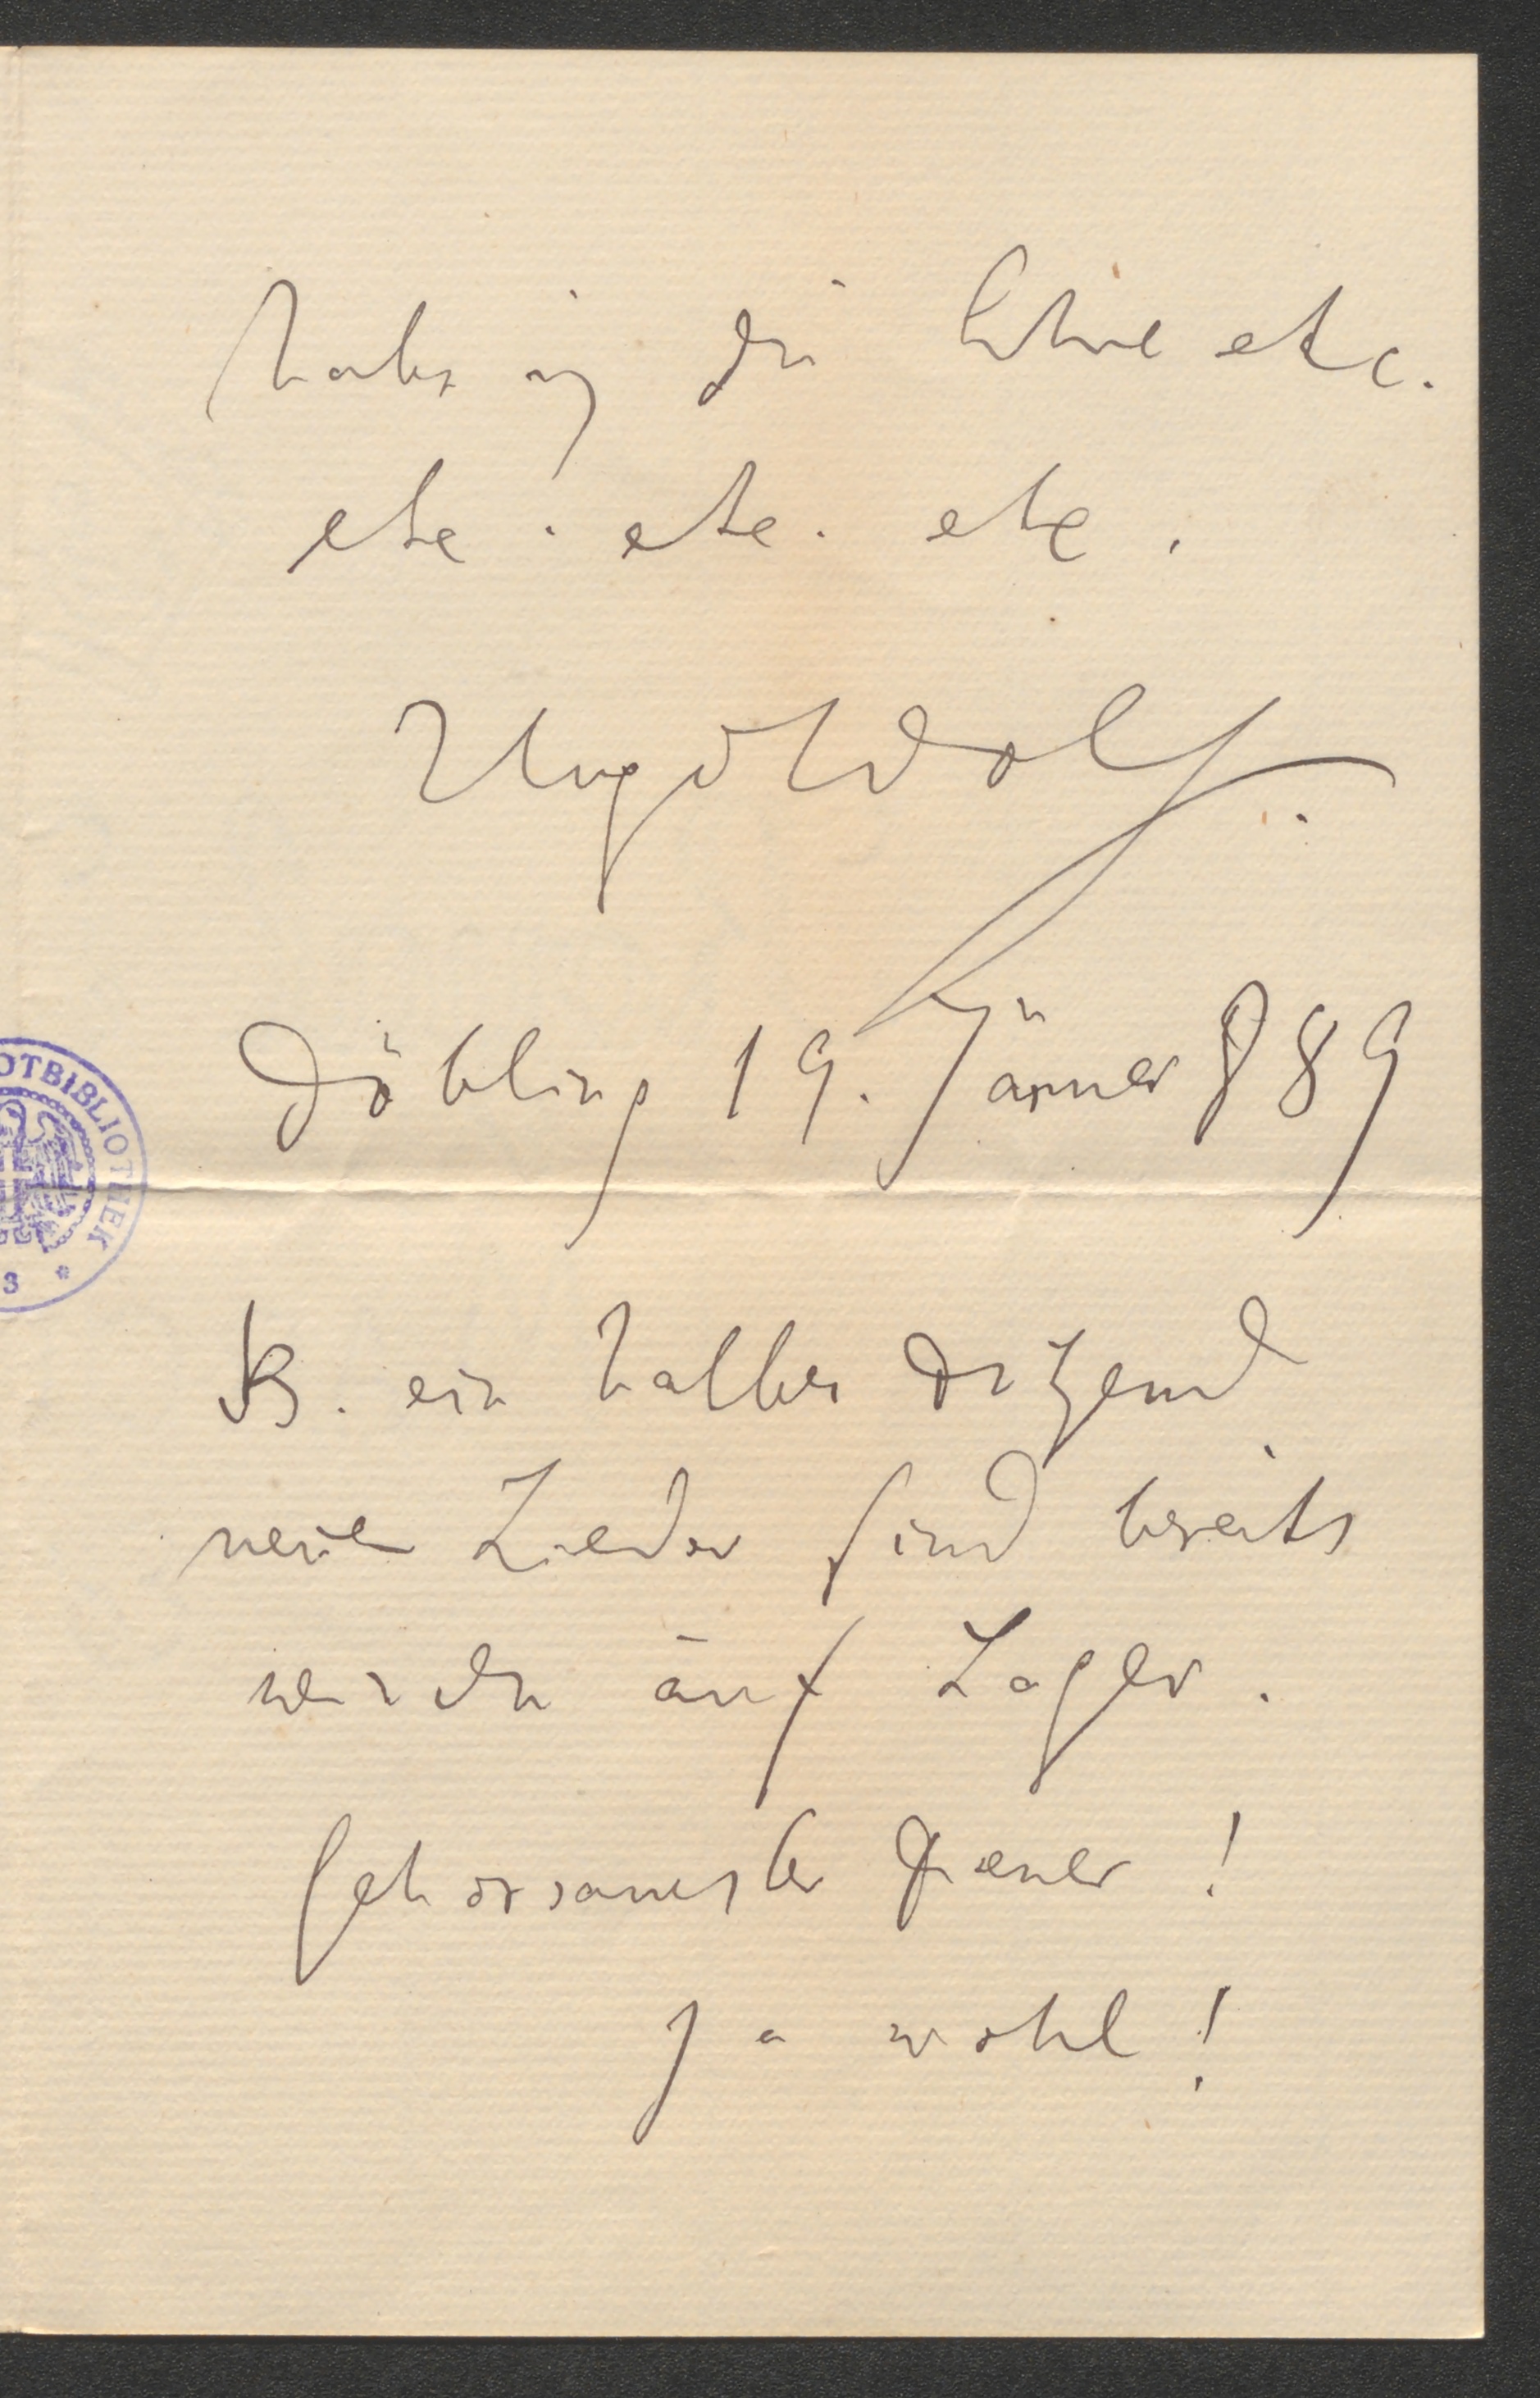 habe ich die Ehre etc.
etc. etc. etc.
Hugo Wolf.
Döbling 19. Jänner 889
OTBIBLIOTHEK
NB. ein halbes Dutzend
neue Lieder sind bereits
wieder auf Lager.
Gehorsamster Diener!
Ja wohl!